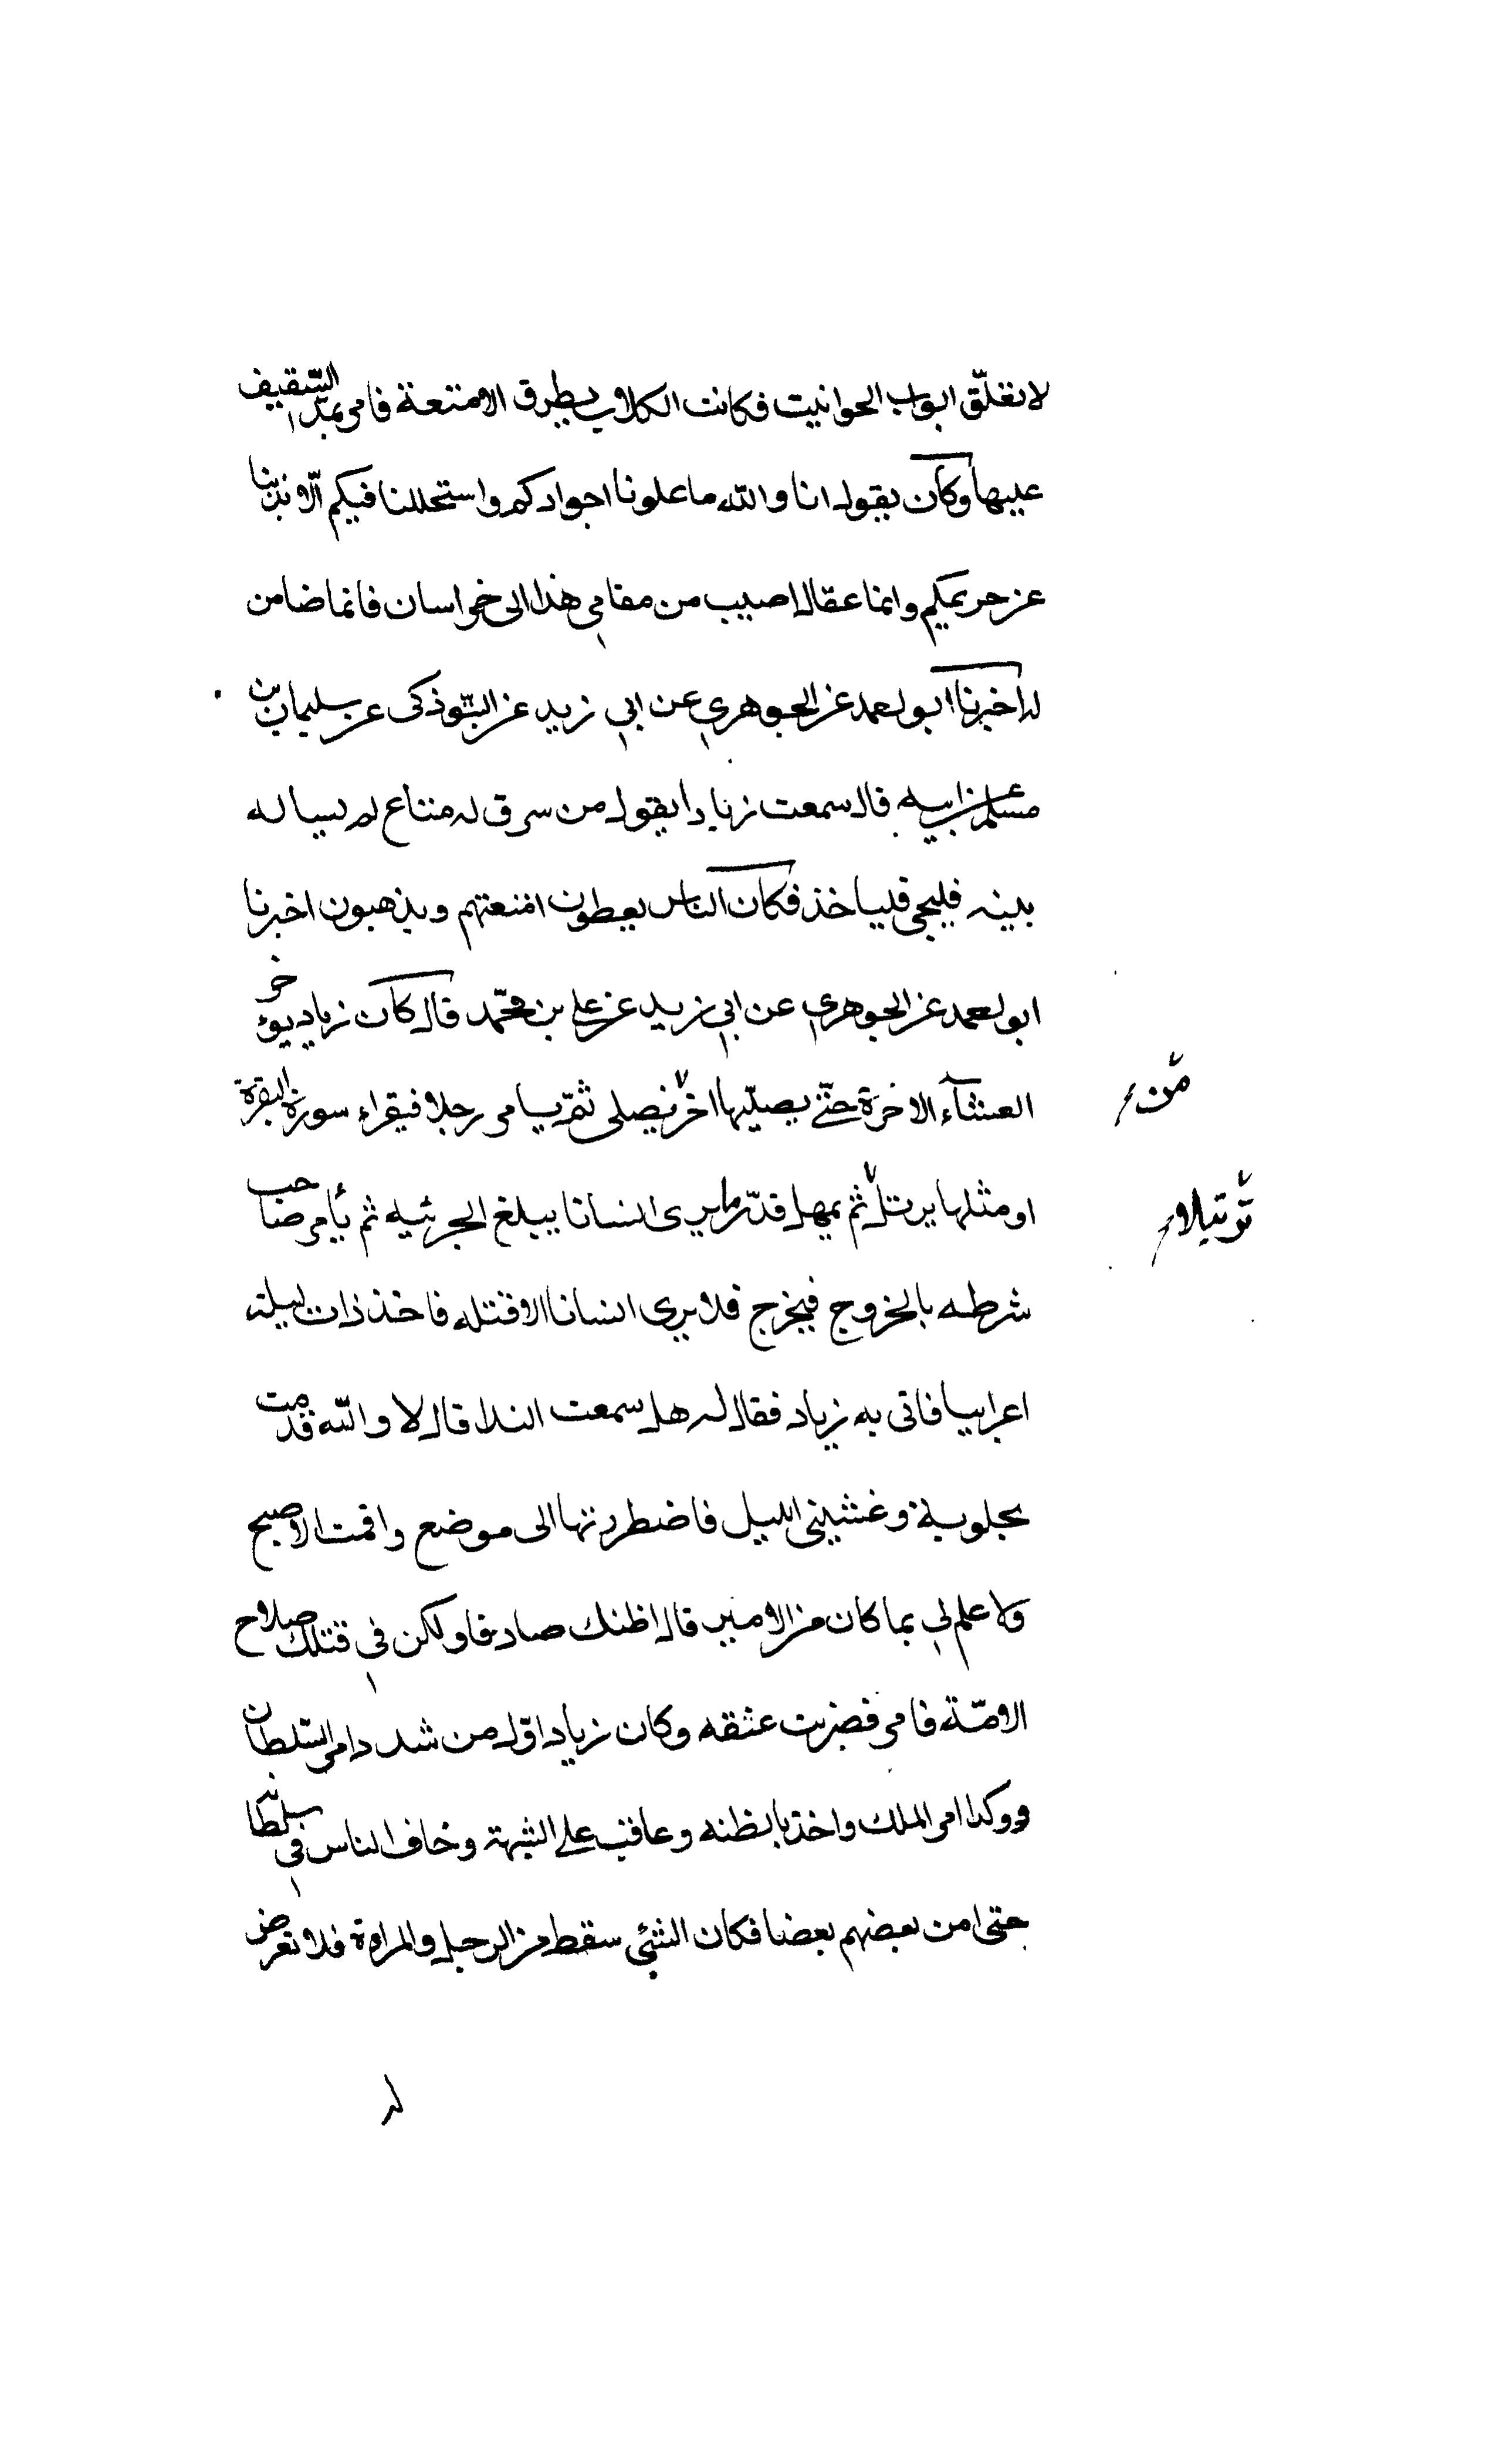 لا تغلّق ابواب الحوانيت فكانت الكلاب يطرق الامتعة فامر بمدّ السّقيف
عليها وكان يقول انا والله ما علونا اجوادكم واستحللنا فيكم الّا وبذبنا
عن حريمكم وانما عقال اصيب من مقامي هذا الى خراسان فانما ضامن
له اخبرنا ابو احمد عن الجوهري عن ابي زيد عن التبّوذكى عن سليمان بن
مسلم عن ابيه قال سمعت زيادا يقول من سرق له متاع لم يساله
بينه فليجى فلياخذ فكان الناس يعطون امتعتهم ويذهبون اخبرنا
ابو احمد عن الجوهري عن ابي زيد عن علي بن محمّد قال كان زياد يوءخر
العشآء الاخرة حتّى يصلّيها اخر من يصلى ثمّ يامر رجلا فيقراء سورة البقرة
او مثلها يرتل ترتيلا ثم يمهل قدّر ما يرى انسانا يبلغ الجرئيه ثم يأمر صاحب
شرطه بالخروج فيخرج فلا يرى انسانا الا قتله فاخذ ذات ليلة
اعرابيا فاتى به زياد فقال له هل سمعت الندا قال لا والله قدمت
بحلوبة وغشيني الليل فاضطررتها الى موضع واقمت لاصبح
ولا علم لي بما كان من الامير قال اظنك صادقا ولكن في قتلك صلاح
الامّة فامر فضربت عنقه وكان زياد اوّل من شدد امر السّلطان
ووكد امر الملك واخذ بالظنه وعاقب على الشبهة وخاف الناس في سلطانه
حتى امن بعضهم بعضا فكان الشئي سقط من الرجل والمراة فلا تعرض
له